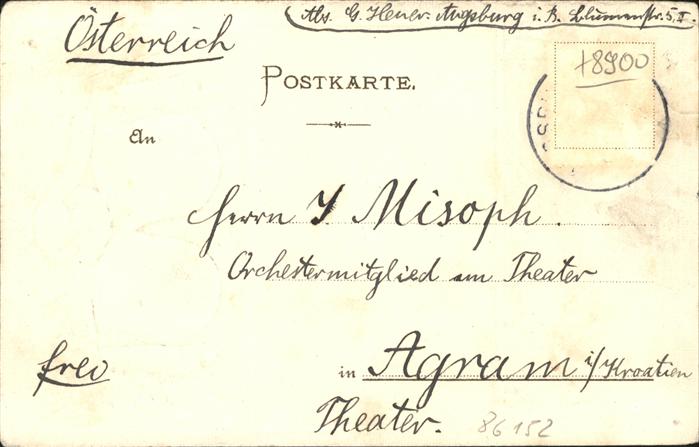 Abs. G. Heuer. Augsburg i. B. Blumenstr. 5.II.
Österreich
+8900
POSTKARTE.
An
Herrn J. Misoph.
Orchestermitglied am Theater
frei
in Agram i/Kroatien
Theater.
86152